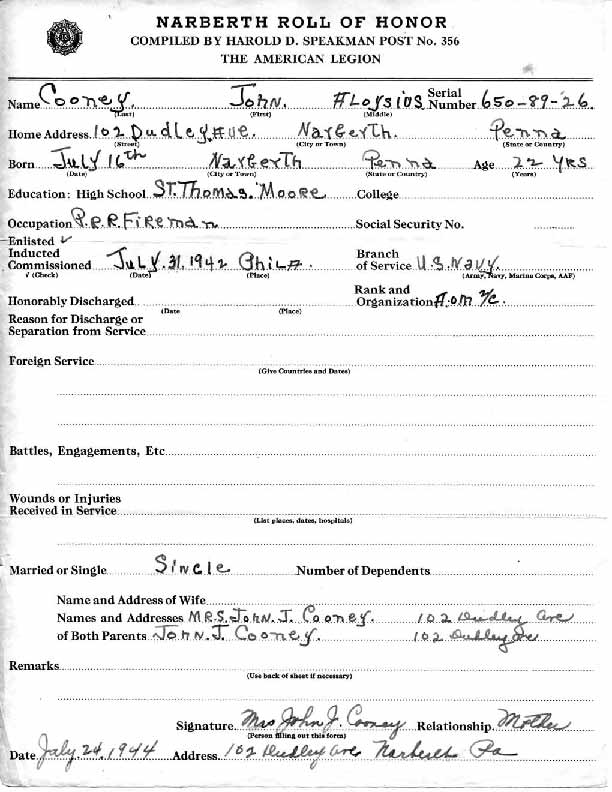 NARBERTH ROLL OF HONOR
COMPILED BY HAROLD D. SPEAKMAN POST No. 356
THE AMERICAN LEGION
Name Cooney. John. Aloysius Serial Number 650-89-26
(Last) (First) (Middle)
Home Address 102 Dudley Ave. Narberth. Penna
(Street) (City or Town) (State or Country)
Born July 16th Narberth Penna Age 22 YRS
(Date) (City or Town) (State or Country) (Years)
Education: High School ST. Thomas. Moore College
Occupation P.R.R Fireman Social Security No.
Enlisted ✓
Inducted
Commissioned July. 31, 1942 Phila. Branch of Service U.S. Navy.
√ (Check) (Date) (Place) (Army, Navy, Marine Corps, AAF)
Honorably Discharged Rank and Organization A.O.M 2/c.
(Date (Place)
Reason for Discharge or
Separation from Service
Foreign Service
(Give Countries and Dates)
Battles, Engagements, Etc
Wounds or Injuries
Received in Service
(List places, dates, hospitals)
Married or Single Single Number of Dependents
Name and Address of Wife
Names and Addresses MRS. John. J. Cooney. 102 Dudley Ave
of Both Parents John. J. Cooney. 102 Dudley Ave
Remarks
(Use back of sheet if necessary)
Signature Mrs John J. Cooney Relationship Mother
(Person filling out this form)
Date July 24, 1944 Address 102 Dudley Ave Narberth Pa